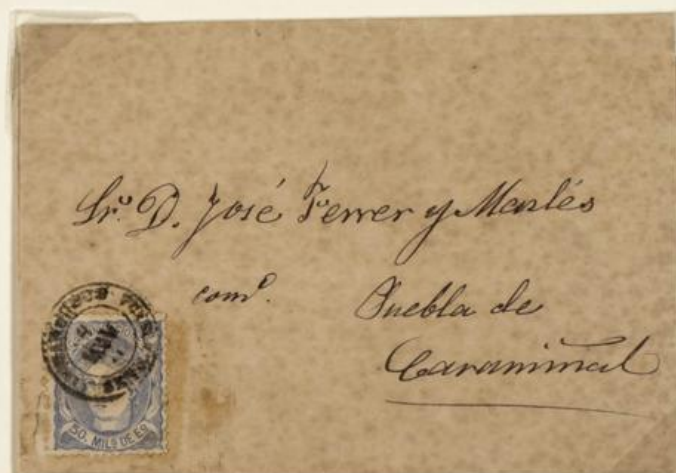 Sr. D. José Ferrer y Marlés
com.
Puebla de
Caramiñal
50. MILS DE Eo